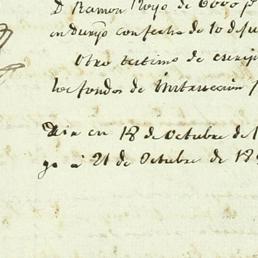 D. Ramon Royo de 6000 p
en Durgo con fecha de 10 de Ju
Otro testimo de escrip
los fondos de Instruccion p
Dia en 18 de Octubre de 1
go a 21 de Octubre de 18